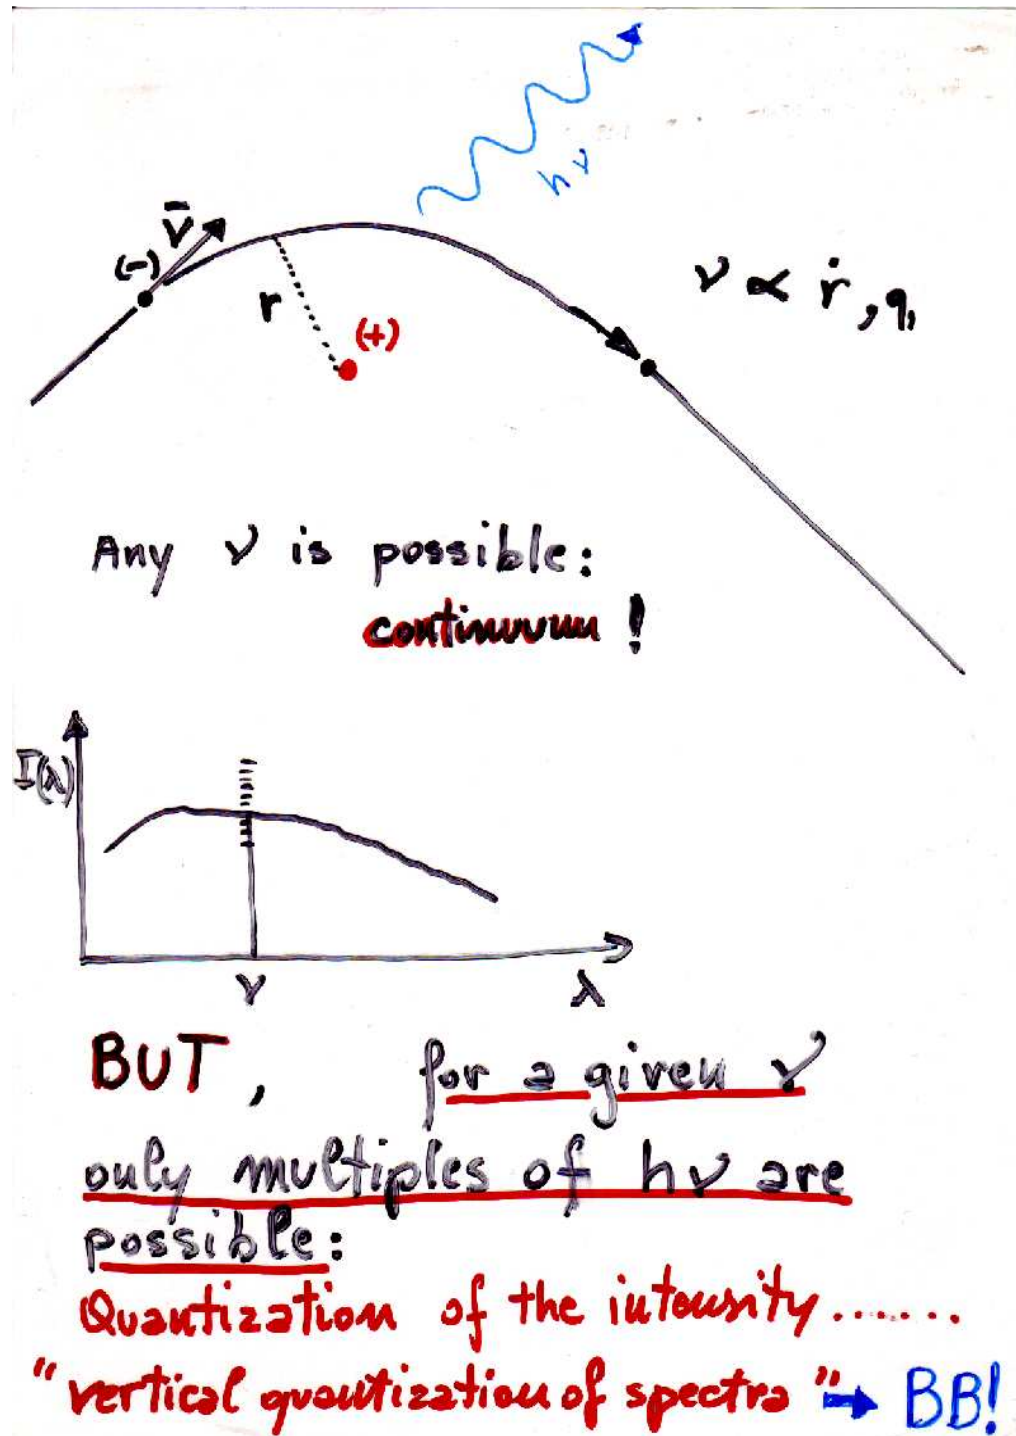 hν
v̄
(-)
r
(+)
ν ∝ ṙ, q,
Any ν is possible:
continuum !
I(λ)
ν
λ
BUT, for a given ν
only multiples of hν are
possible:
Quantization of the intensity.......
"vertical quantization of spectra" → BB!